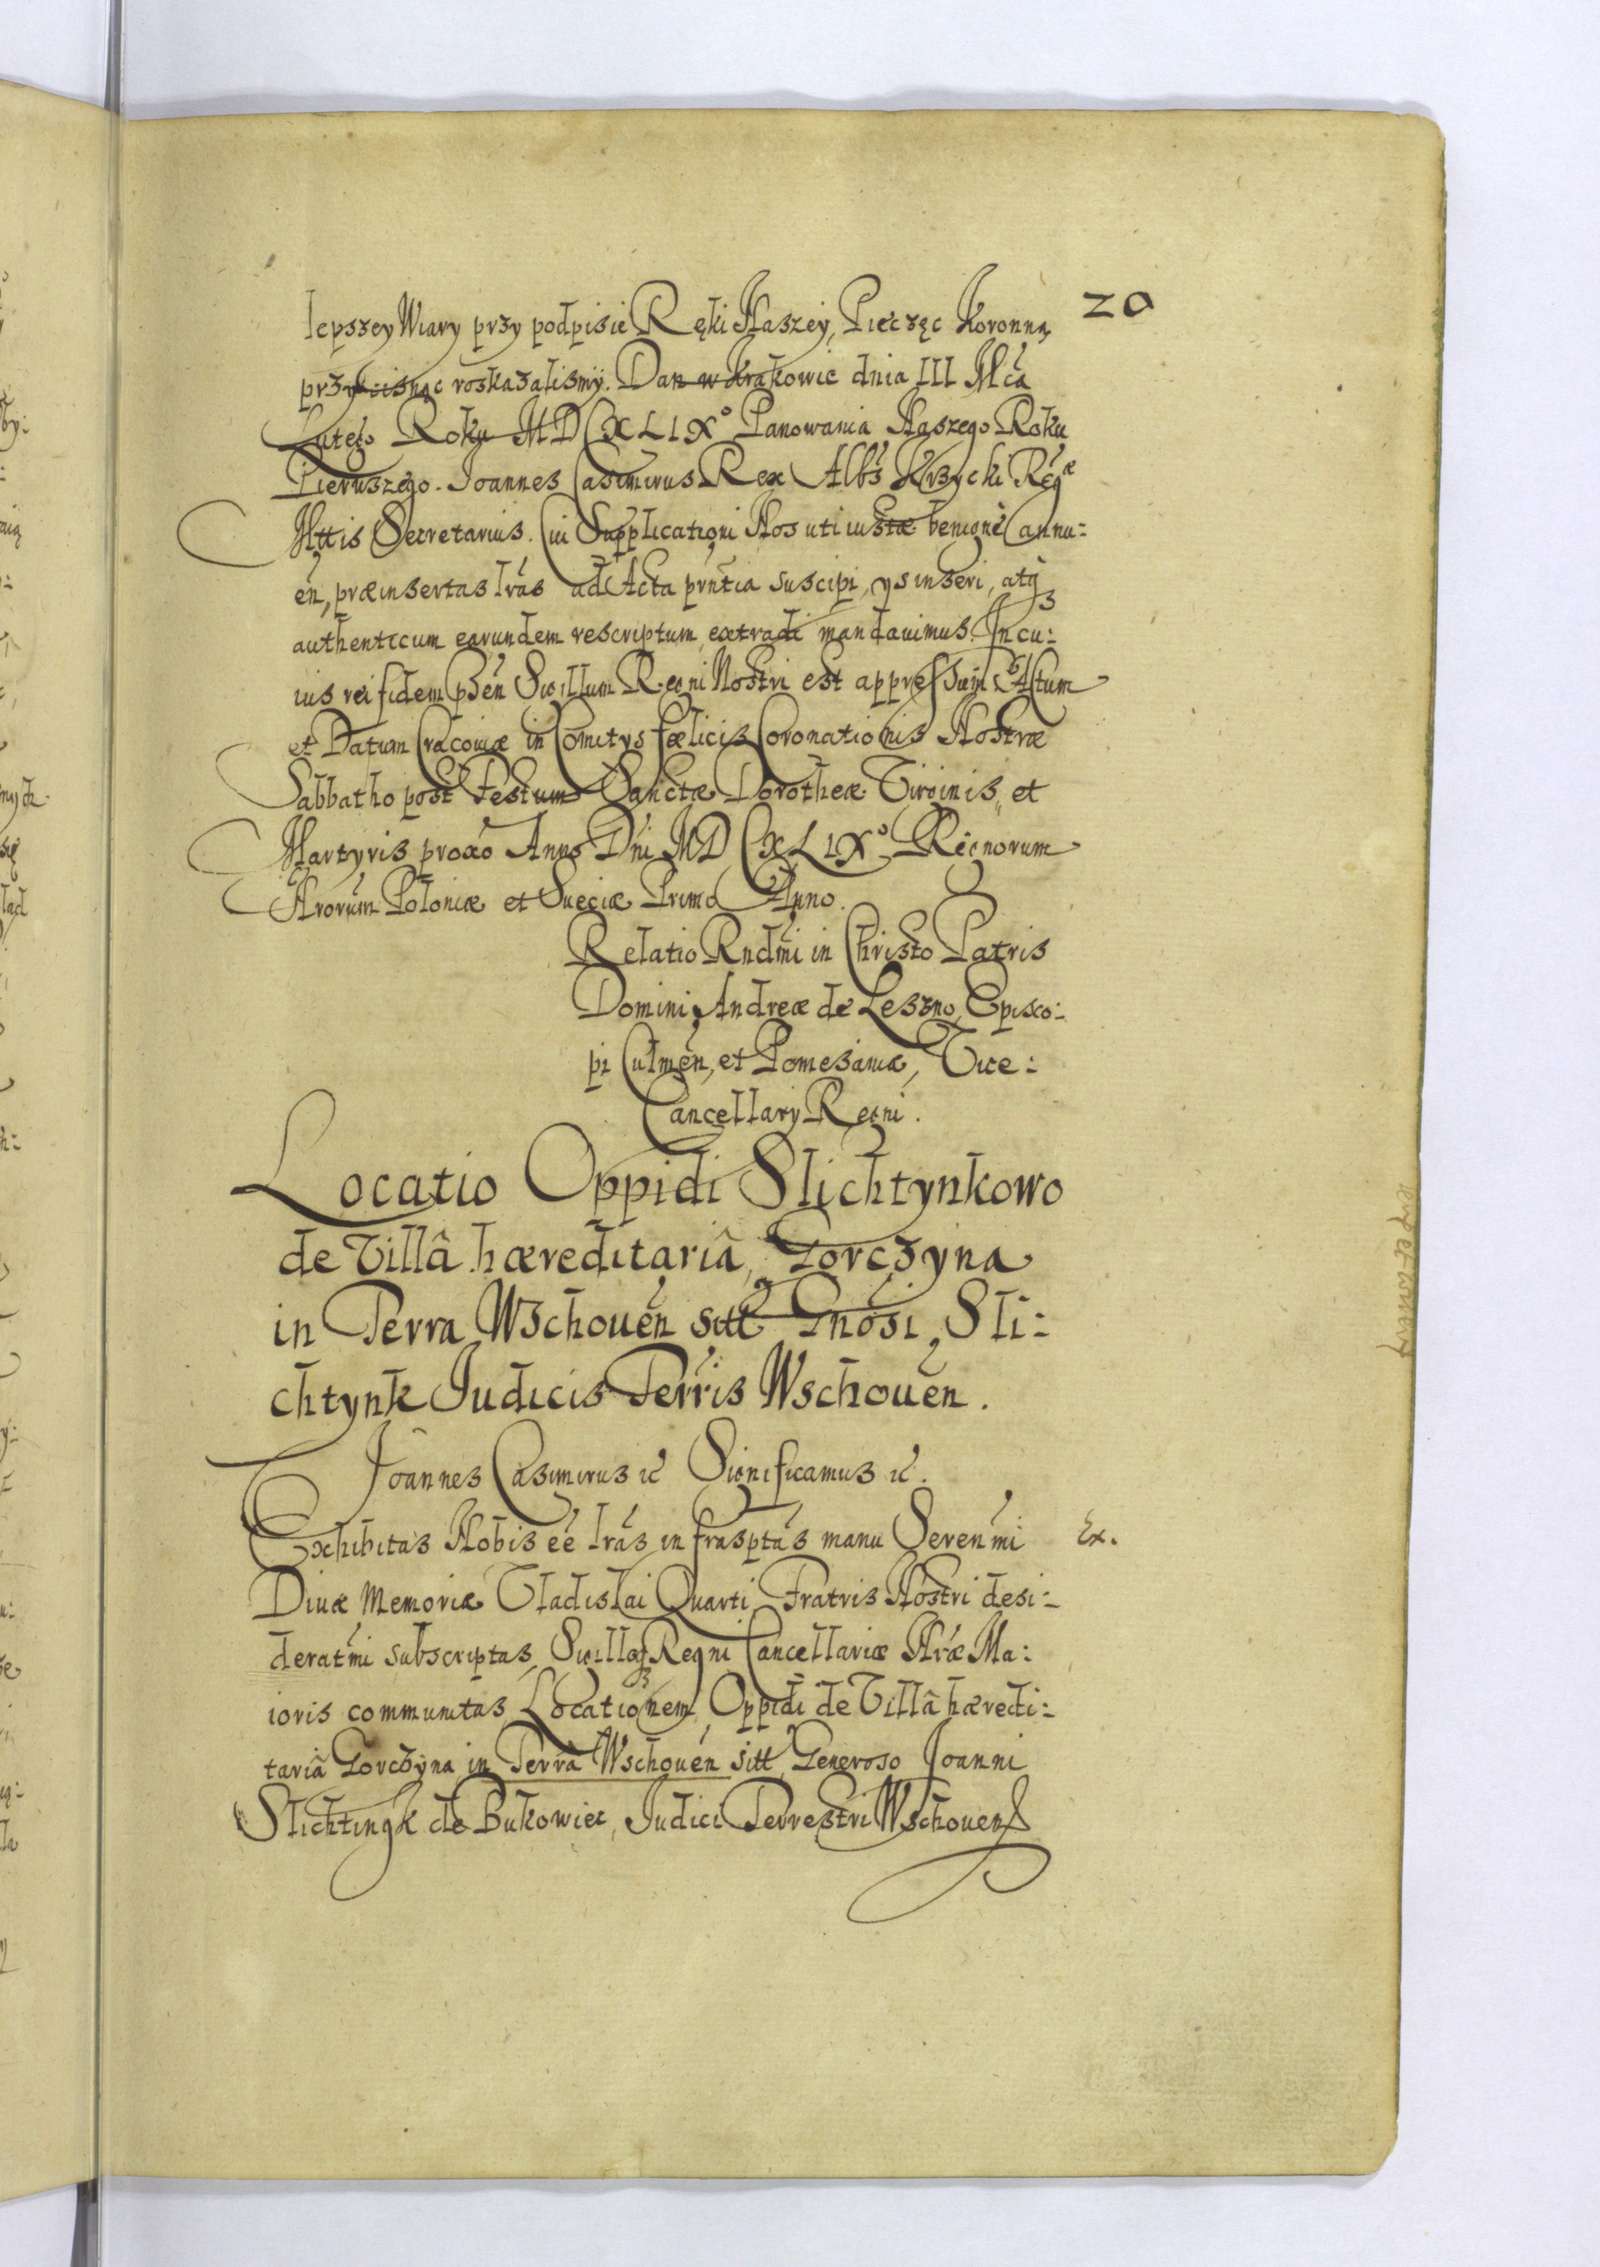 20
lepszey Wiary przy podpisie Ręki Naszey, Pieczęc Koronną
przycisnąc roskazalismÿ. Dan w Krakowie dnia III Mca
Lutego Roku MDCXLIX° Panowania Naszego Roku
Pierwszego. Joannes Casimirus Rex Albs Krzycki Regæ
Mttis Secretarius. Cui Supplicationi Nos uti iustæ benigne annu:
en, præinsertas lras ad Acta prntia suscipi, ys inseri, atq3
authenticum earundem rescriptum extradi mandauimus. In cu:
ius rei fidem pšen Sigillum Regni Nostri est appressum. Actum
et Datum Cracouiæ in Comitys fœlicis Coronationis Nostræ
Sabbatho post Festum Sanctæ Dorotheæ Virginis, et
Martyris proxo Anno Dni MDCXLIX° Regnorum
Nrorum Poloniæ et Sueciæ Primo Anno.
Relatio Rndmi in Christo Patris
Domini Andreæ de Leszno Episco:
pi Culmen, et Pomesaniæ, Vice:
Cancellary Regni.
Locatio Oppidi Slichtynkowo
de Villâ hæreditariâ, Gorczyna
in Terra Wschouen sitt Gnosi Sli:
chtynk Judicis Terris Wschouen.
Joannes Casimirus ic Significamus ic.
Exhibitas Nobis eé lras infrasptas manu Serenmi
Ex.
Diuæ Memoriæ Vladislai Quarti Fratris Nostri desi:
deratmi subscriptas, Sigilloq3 Regni Cancellariæ Nræ Ma:
ioris communitas Locationem Oppidi de Villâ hæredi:
tariâ Gorczyna in Terrâ Wschouen sitt Generoso Joanni
Slichtingk de Bukowiec, Judici Terrestri Wschouen